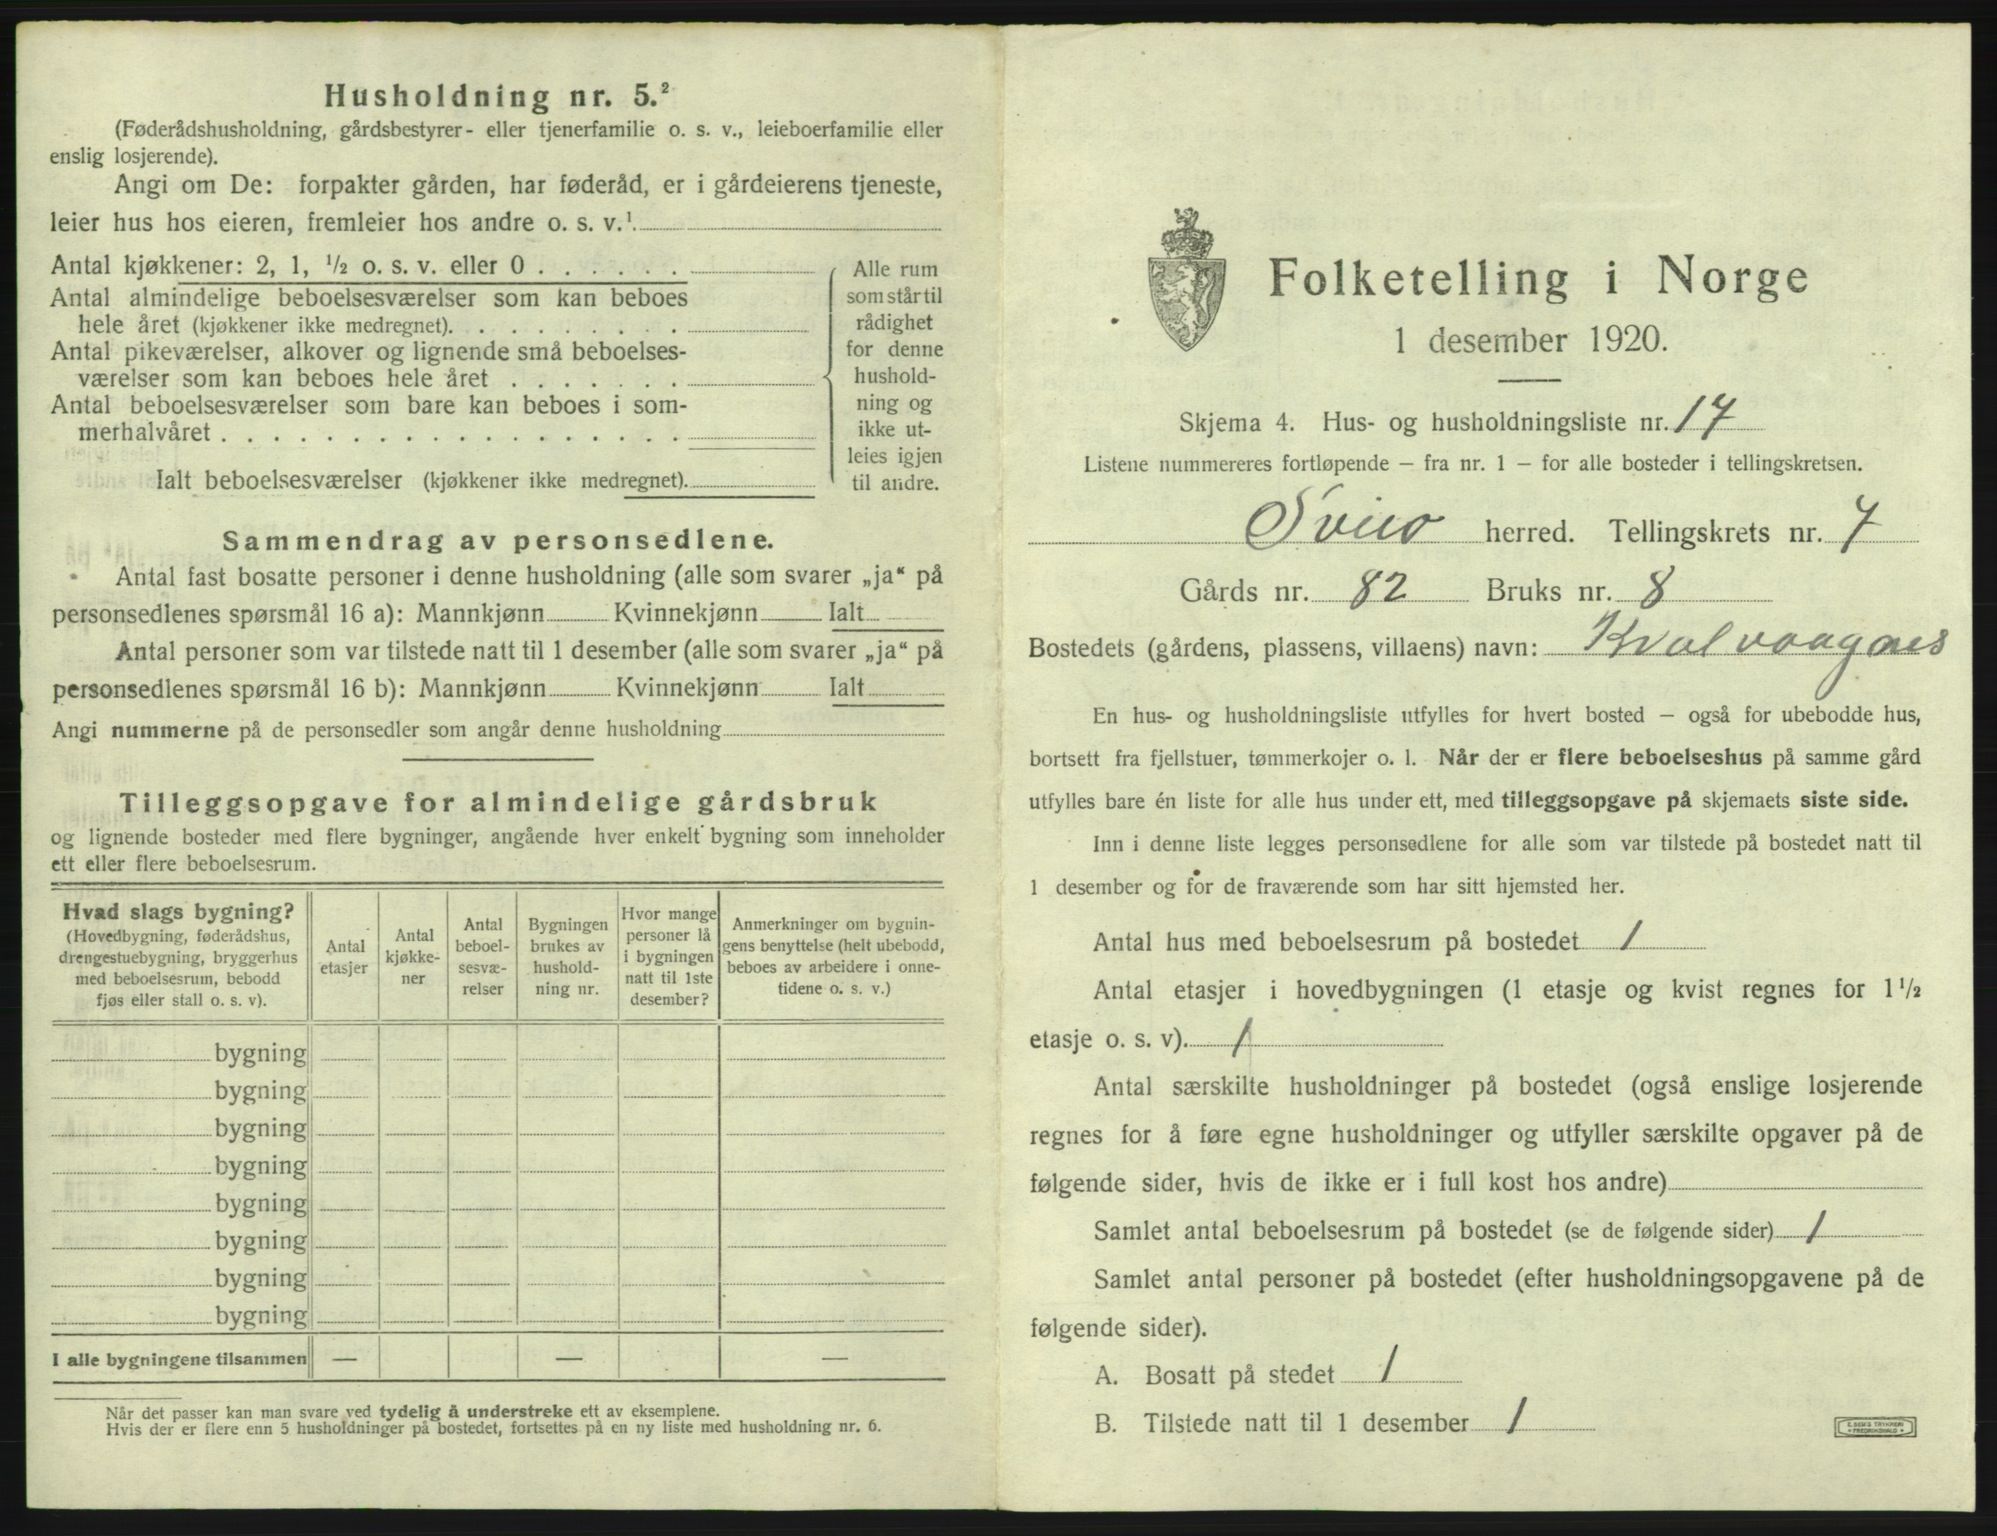 Husholdning nr. 5.²
(Føderådshusholdning, gårdsbestyrer- eller tjenerfamilie o. s. v., leieboerfamilie eller
enslig losjerende).
Angi om De: forpakter gården, har føderåd, er i gårdeierens tjeneste,
leier hus hos eieren, fremleier hos andre o. s. v.¹
Antal kjøkkener: 2, 1, ½ o. s. v. eller 0 . . . . . .
Antal almindelige beboelsesværelser som kan beboes
hele året (kjøkkener ikke medregnet). . . . . . . . .
Antal pikeværelser, alkover og lignende små beboelses-
værelser som kan beboes hele året . . . . . . .
Antal beboelsesværelser som bare kan beboes i som-
merhalvåret . . . . . . . . . . . . . . . . . .
Ialt beboelsesværelser (kjøkkener ikke medregnet).
Alle rum
som står til
rådighet
for denne
hushold-
ning og
ikke ut-
leies igjen
til andre.
Sammendrag av personsedlene.
Antal fast bosatte personer i denne husholdning (alle som svarer „ja“ på
personsedlenes spørsmål 16 a): Mannkjønn Kvinnekjønn Ialt
Antal personer som var tilstede natt til 1 desember (alle som svarer „ja“ på
personsedlenes spørsmål 16 b): Mannkjønn Kvinnekjønn Ialt
Angi nummerne på de personsedler som angår denne husholdning
Tilleggsopgave for almindelige gårdsbruk
og lignende bosteder med flere bygninger, angående hver enkelt bygning som inneholder
ett eller flere beboelsesrum.
Hvad slags bygning?
(Hovedbygning, føderådshus,
drengestuebygning, bryggerhus
med beboelsesrum, bebodd
fjøs eller stall o. s. v).
Antal
etasjer
Antal
kjøkke-
ner
Antal
beboel-
sesvæ-
relser
Bygningen
brukes av
hushold-
ning nr.
Hvor mange
personer lå
i bygningen
natt til 1ste
desember?
Anmerkninger om bygnin-
gens benyttelse (helt ubebodd,
beboes av arbeidere i onne-
tidene o. s. v.)
bygning
bygning
bygning
bygning
bygning
bygning
bygning
bygning
I alle bygningene tilsammen — — —
Når det passer kan man svare ved tydelig å understreke ett av eksemplene.
Hvis der er flere enn 5 husholdninger på bostedet, fortsettes på en ny liste med husholdning nr. 6.
Folketelling i Norge
1 desember 1920.
Skjema 4. Hus- og husholdningsliste nr. 17
Listene nummereres fortløpende – fra nr. 1 – for alle bosteder i tellingskretsen.
Sveio herred. Tellingskrets nr. 7
Gårds nr. 82 Bruks nr. 8
Bostedets (gårdens, plassens, villaens) navn: Kvalvaagnes
En hus- og husholdningsliste utfylles for hvert bosted – også for ubebodde hus,
bortsett fra fjellstuer, tømmerkojer o. l. Når der er flere beboelseshus på samme gård
utfylles bare én liste for alle hus under ett, med tilleggsopgave på skjemaets siste side.
Inn i denne liste legges personsedlene for alle som var tilstede på bostedet natt til
1 desember og for de fraværende som har sitt hjemsted her.
Antal hus med beboelsesrum på bostedet 1
Antal etasjer i hovedbygningen (1 etasje og kvist regnes for 1½
etasje o. s. v). 1
Antal særskilte husholdninger på bostedet (også enslige losjerende
regnes for å føre egne husholdninger og utfyller særskilte opgaver på de
følgende sider, hvis de ikke er i full kost hos andre)
Samlet antal beboelsesrum på bostedet (se de følgende sider) 1
Samlet antal personer på bostedet (efter husholdningsopgavene på de
følgende sider).
A. Bosatt på stedet 1
B. Tilstede natt til 1 desember 1